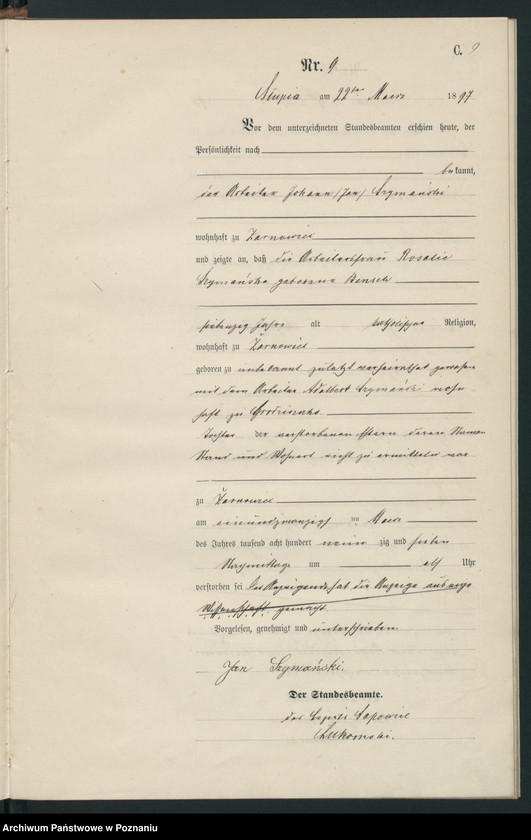 C. 9
Nr. 9
Słupia am 22ten Maerz 1897
Vor dem unterzeichneten Standesbeamten erschien heute, der
Persönlichkeit nach
bekannt,
der Arbeiter Johann (Jan) Szymański
wohnhaft zu Żarnowiec
und zeigte an, daß die Arbeiterfrau Rosalie
Szymańska geborene
siebenzig Jahre alt katholischer Religion,
wohnhaft zu Żarnowiec
geboren zu unbekannt zuletzt verheirathet gewesen
mit dem Arbeiter Adalbert Szymański wohn
haft zu
Tochter der verstorbenen Eltern deren Namen
Stand und Wohnort nicht zu ermitteln war
zu Żarnowiec
am einundzwanzigsten Maerz
des Jahres tausend acht hundert neunzig und sieben
Nachmittags um elf Uhr
verstorben sei Der Anzeigende hat die Anzeige aus
Wissenschaft gemacht
Vorgelesen, genehmigt und unterschrieben
Jan Szymański.
Der Standesbeamte.
Archiwum Państwowe w Poznaniu